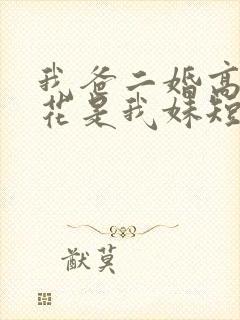 我爸二婚高
花是我妹短
猷莫